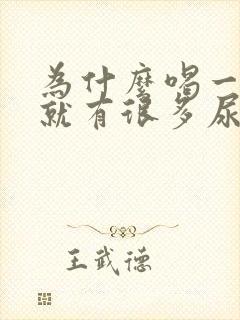 为什麽喝一
就有很多尿
王武德